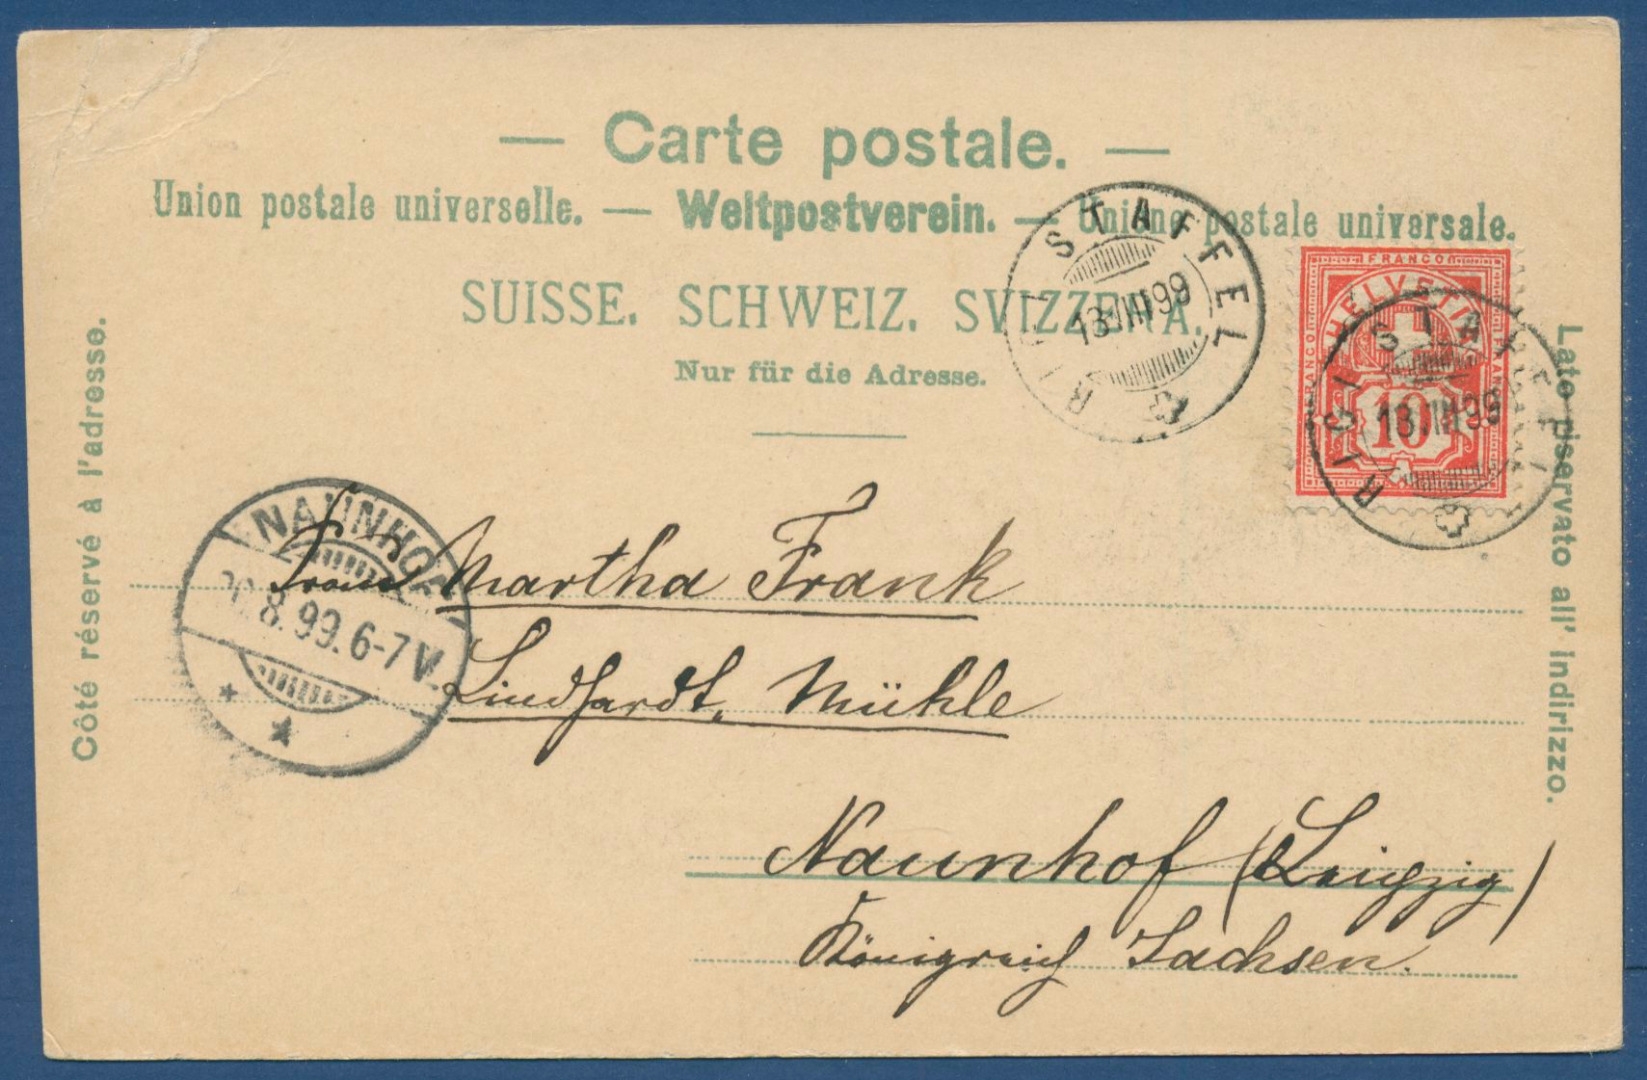 — Carte postale. —
Union postale universelle. — Weltpostverein. — Unione postale universale.
SUISSE. SCHWEIZ. SVIZZERA.
Nur für die Adresse.
Côté réservé à l'adresse.
Lato riservato all' indirizzo.
RIGI STAFFEL
13.VIII 99
FRANCO
FRANCO
FRANCO
HELVETIA
10
RIGI STAFFEL
13.VIII 99
NAUNHOF
8.99.6-7V.
Frau Martha Frank
Lindhardt, Mühle
Naunhof (Leipzig)
Königreich Sachsen.